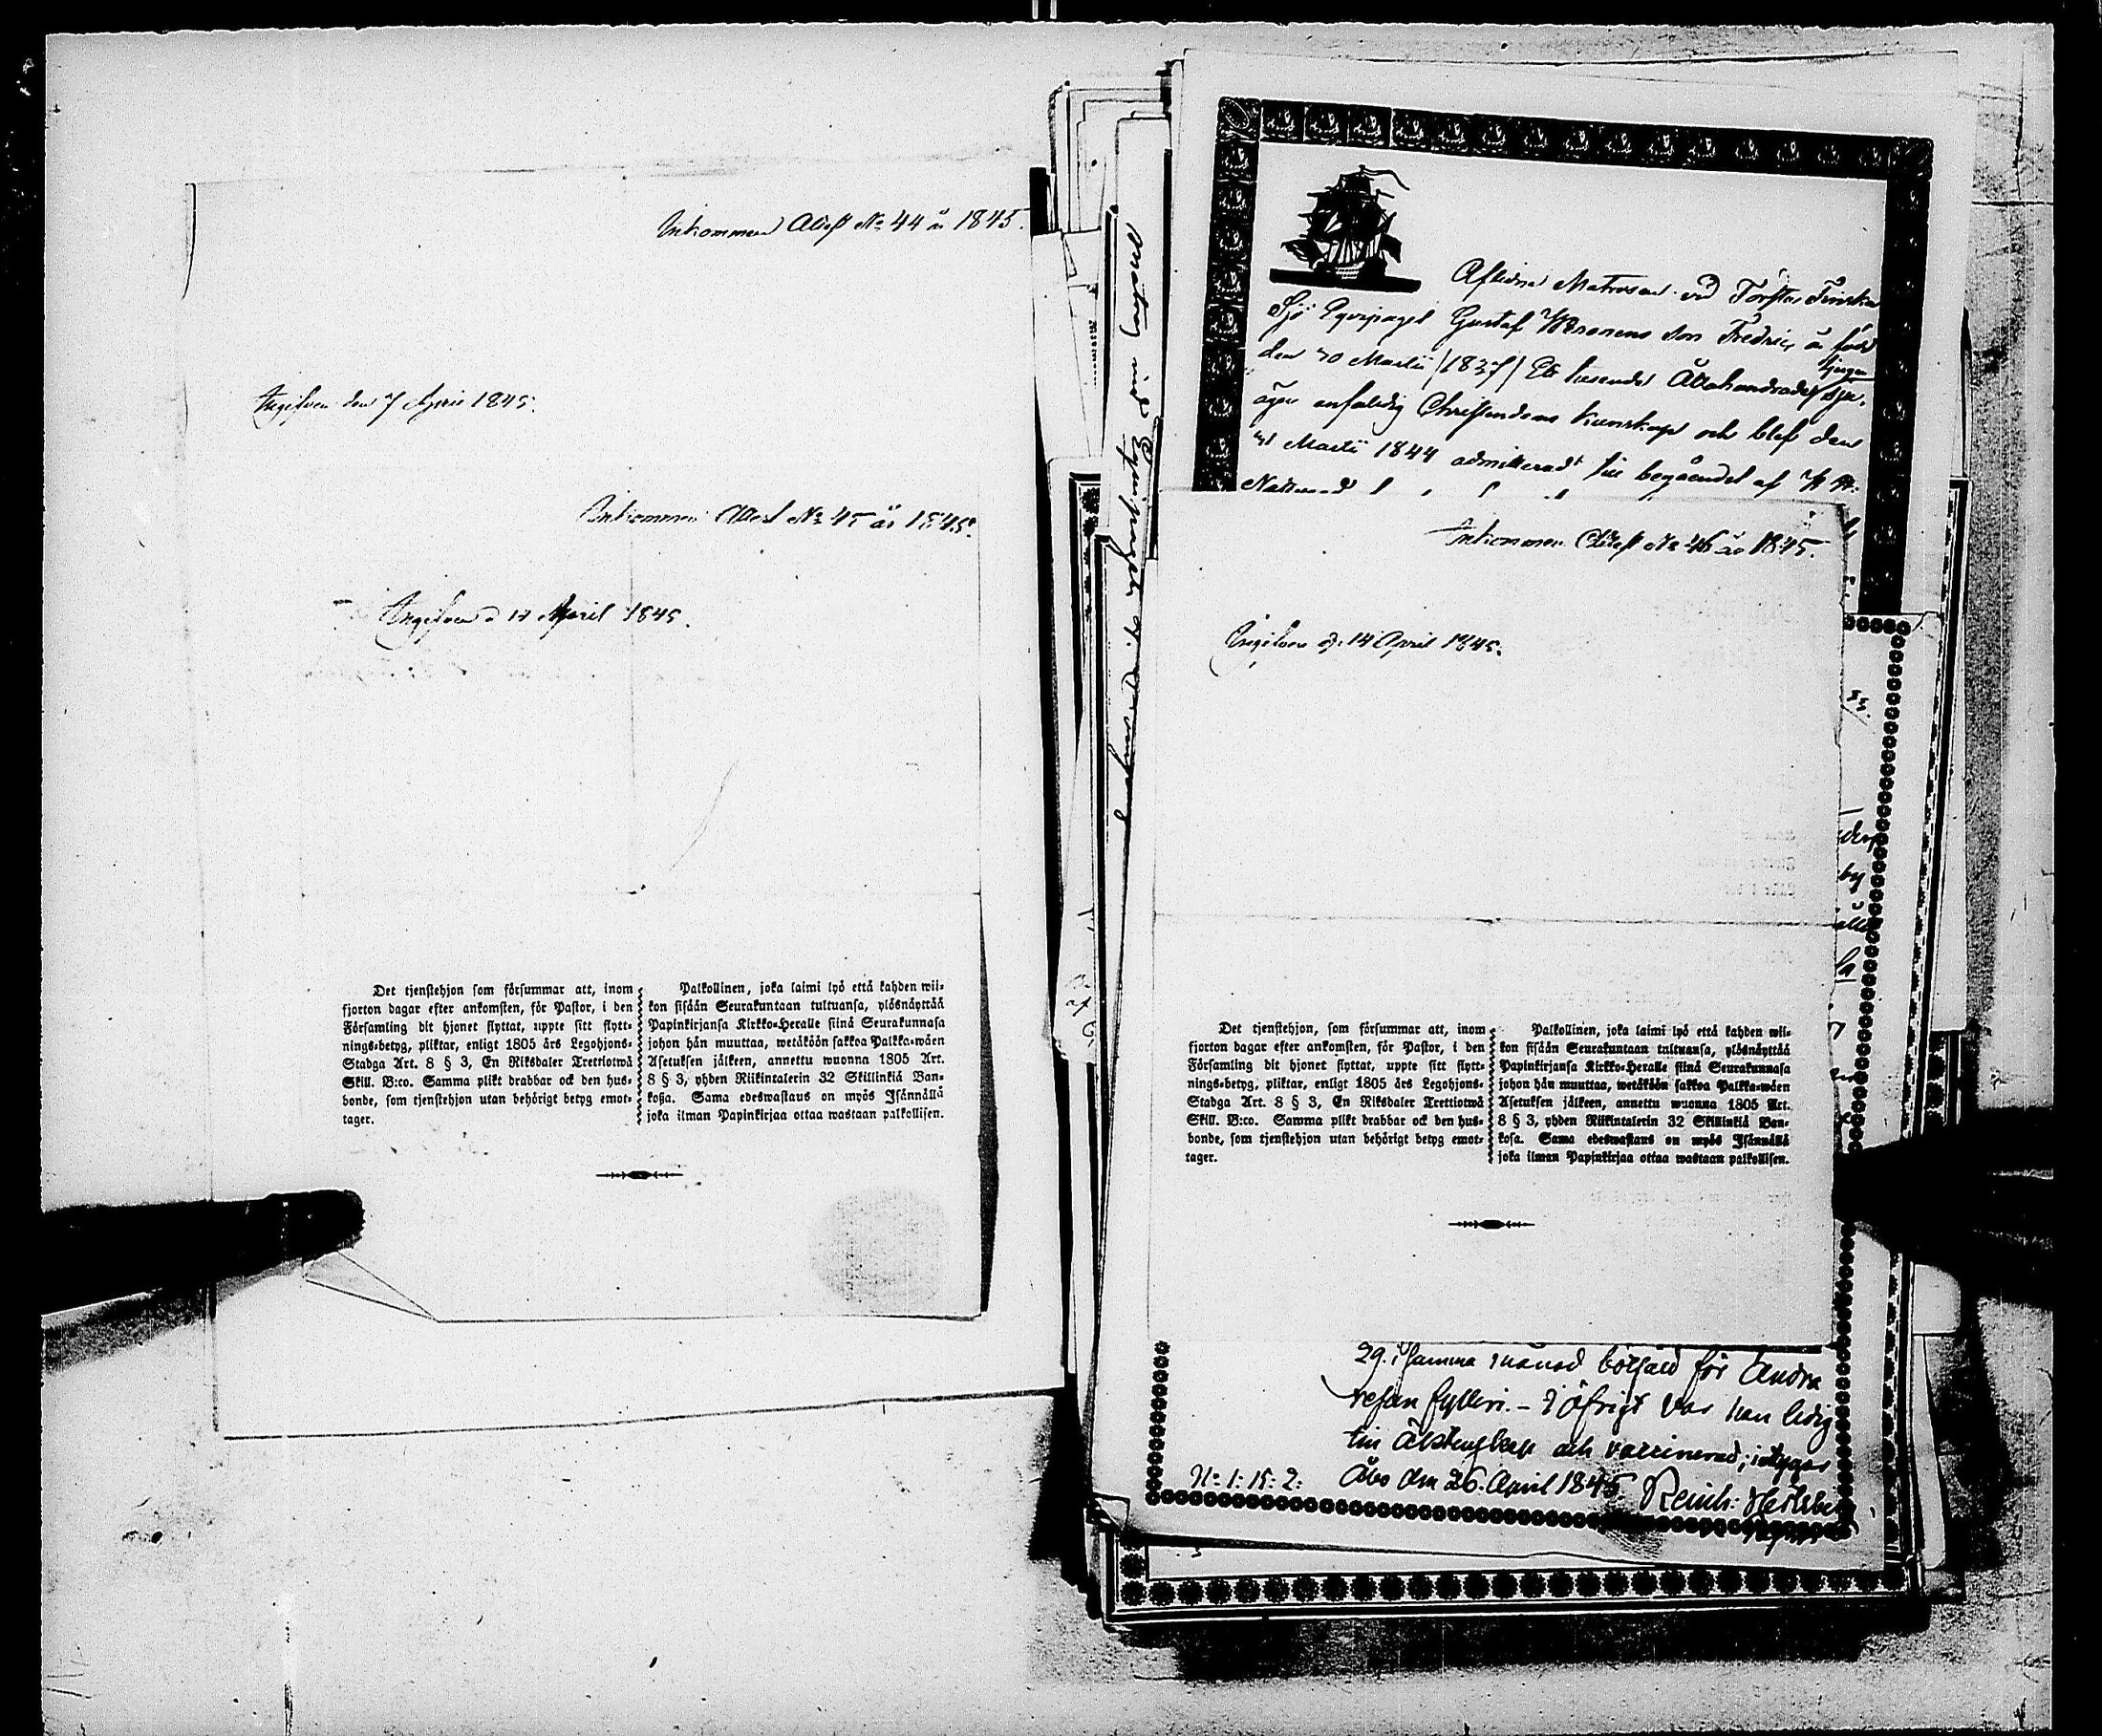 Inkommen Attest No 44 år 1845.
Ingifven den 7 April 1845.
Inkommen Attest No 45 år 1845.
Ingifven d 14 April 1845.
Det tjenstehjon som försummar att, inom
fjorton dagar efter ankomsten, för Pastor, i den
Församling dit hjonet flyttat, uppte sitt flytt-
nings-betyg, pliktar, enligt 1805 års Legohjons-
Stadga Art. 8 § 3, En Riksdaler Trettiotwå
Skill. B:co. Samma plikt drabbar ock den hus-
bonde, som tjenstehjon utan behörigt betyg emot-
tager.
Palkollinen, joka laimi lyö että kahden wii-
kon sisään Seurakuntaan tultuansa, ylösnäyttää
Papinkirjansa Kirkko-Heralle siinä Seurakunnasa
johon hän muuttaa, wetäköön sakkoa Palkka-wäen
Asetuksen jälkeen, annettu wuonna 1805 Art.
8 § 3, yhden Riikintalerin 32 Skillinkiä Ban-
kosa. Sama edeswastaus on myös Isännällä
joka ilman Papinkirjaa ottaa wastaan palkollisen.
Aflidne Matrosen vid Första Finska
Sjö Eqvipaget Gustaf son Fredric är född
den 30 Martii (1827) Ett tusende Åttahundrade tjugu sju,
äger anständig Christendoms kunskap och blef den
31 Martii 1844 admitterad till begåendet af H. H.
Nattvard
Inkommen Attest No 46 år 1845.
Ingifven d: 14 April 1845.
Det tjenstehjon, som försummar att, inom
fjorton dagar efter ankomsten, för Pastor, i den
Församling dit hjonet flyttat, uppte sitt flytt-
nings-betyg, pliktar, enligt 1805 års Legohjons-
Stadga Art. 8 § 3, En Riksdaler Trettiotwå
Skill. B:co. Samma plikt drabbar ock den hus-
bonde, som tjenstehjon utan behörigt betyg emot-
tager.
Palkollinen, joka laimi lyö että kahden wii-
kon sisään Seurakuntaan tultuansa, ylösnäyttää
Papinkirjansa Kirkko-Heralle siinä Seurakunnasa
johon hän muuttaa, wetäköön sakkoa Palkka-wäen
Asetuksen jälkeen, annettu wuonna 1805 Art.
8 § 3, yhden Riikintalerin 32 Skillinkiä Ban-
kosa. Sama edeswastaus on myös Isännällä
joka ilman Papinkirjaa ottaa wastaan palkollisen.
29. i samma månad bötfäld för andra
resan fylleri. - I öfrigt var han ledig
till Äktenskap och vaccinerad; intygar
No: 1: 15: 2: Åbo den 26. April 1845. Reinh: